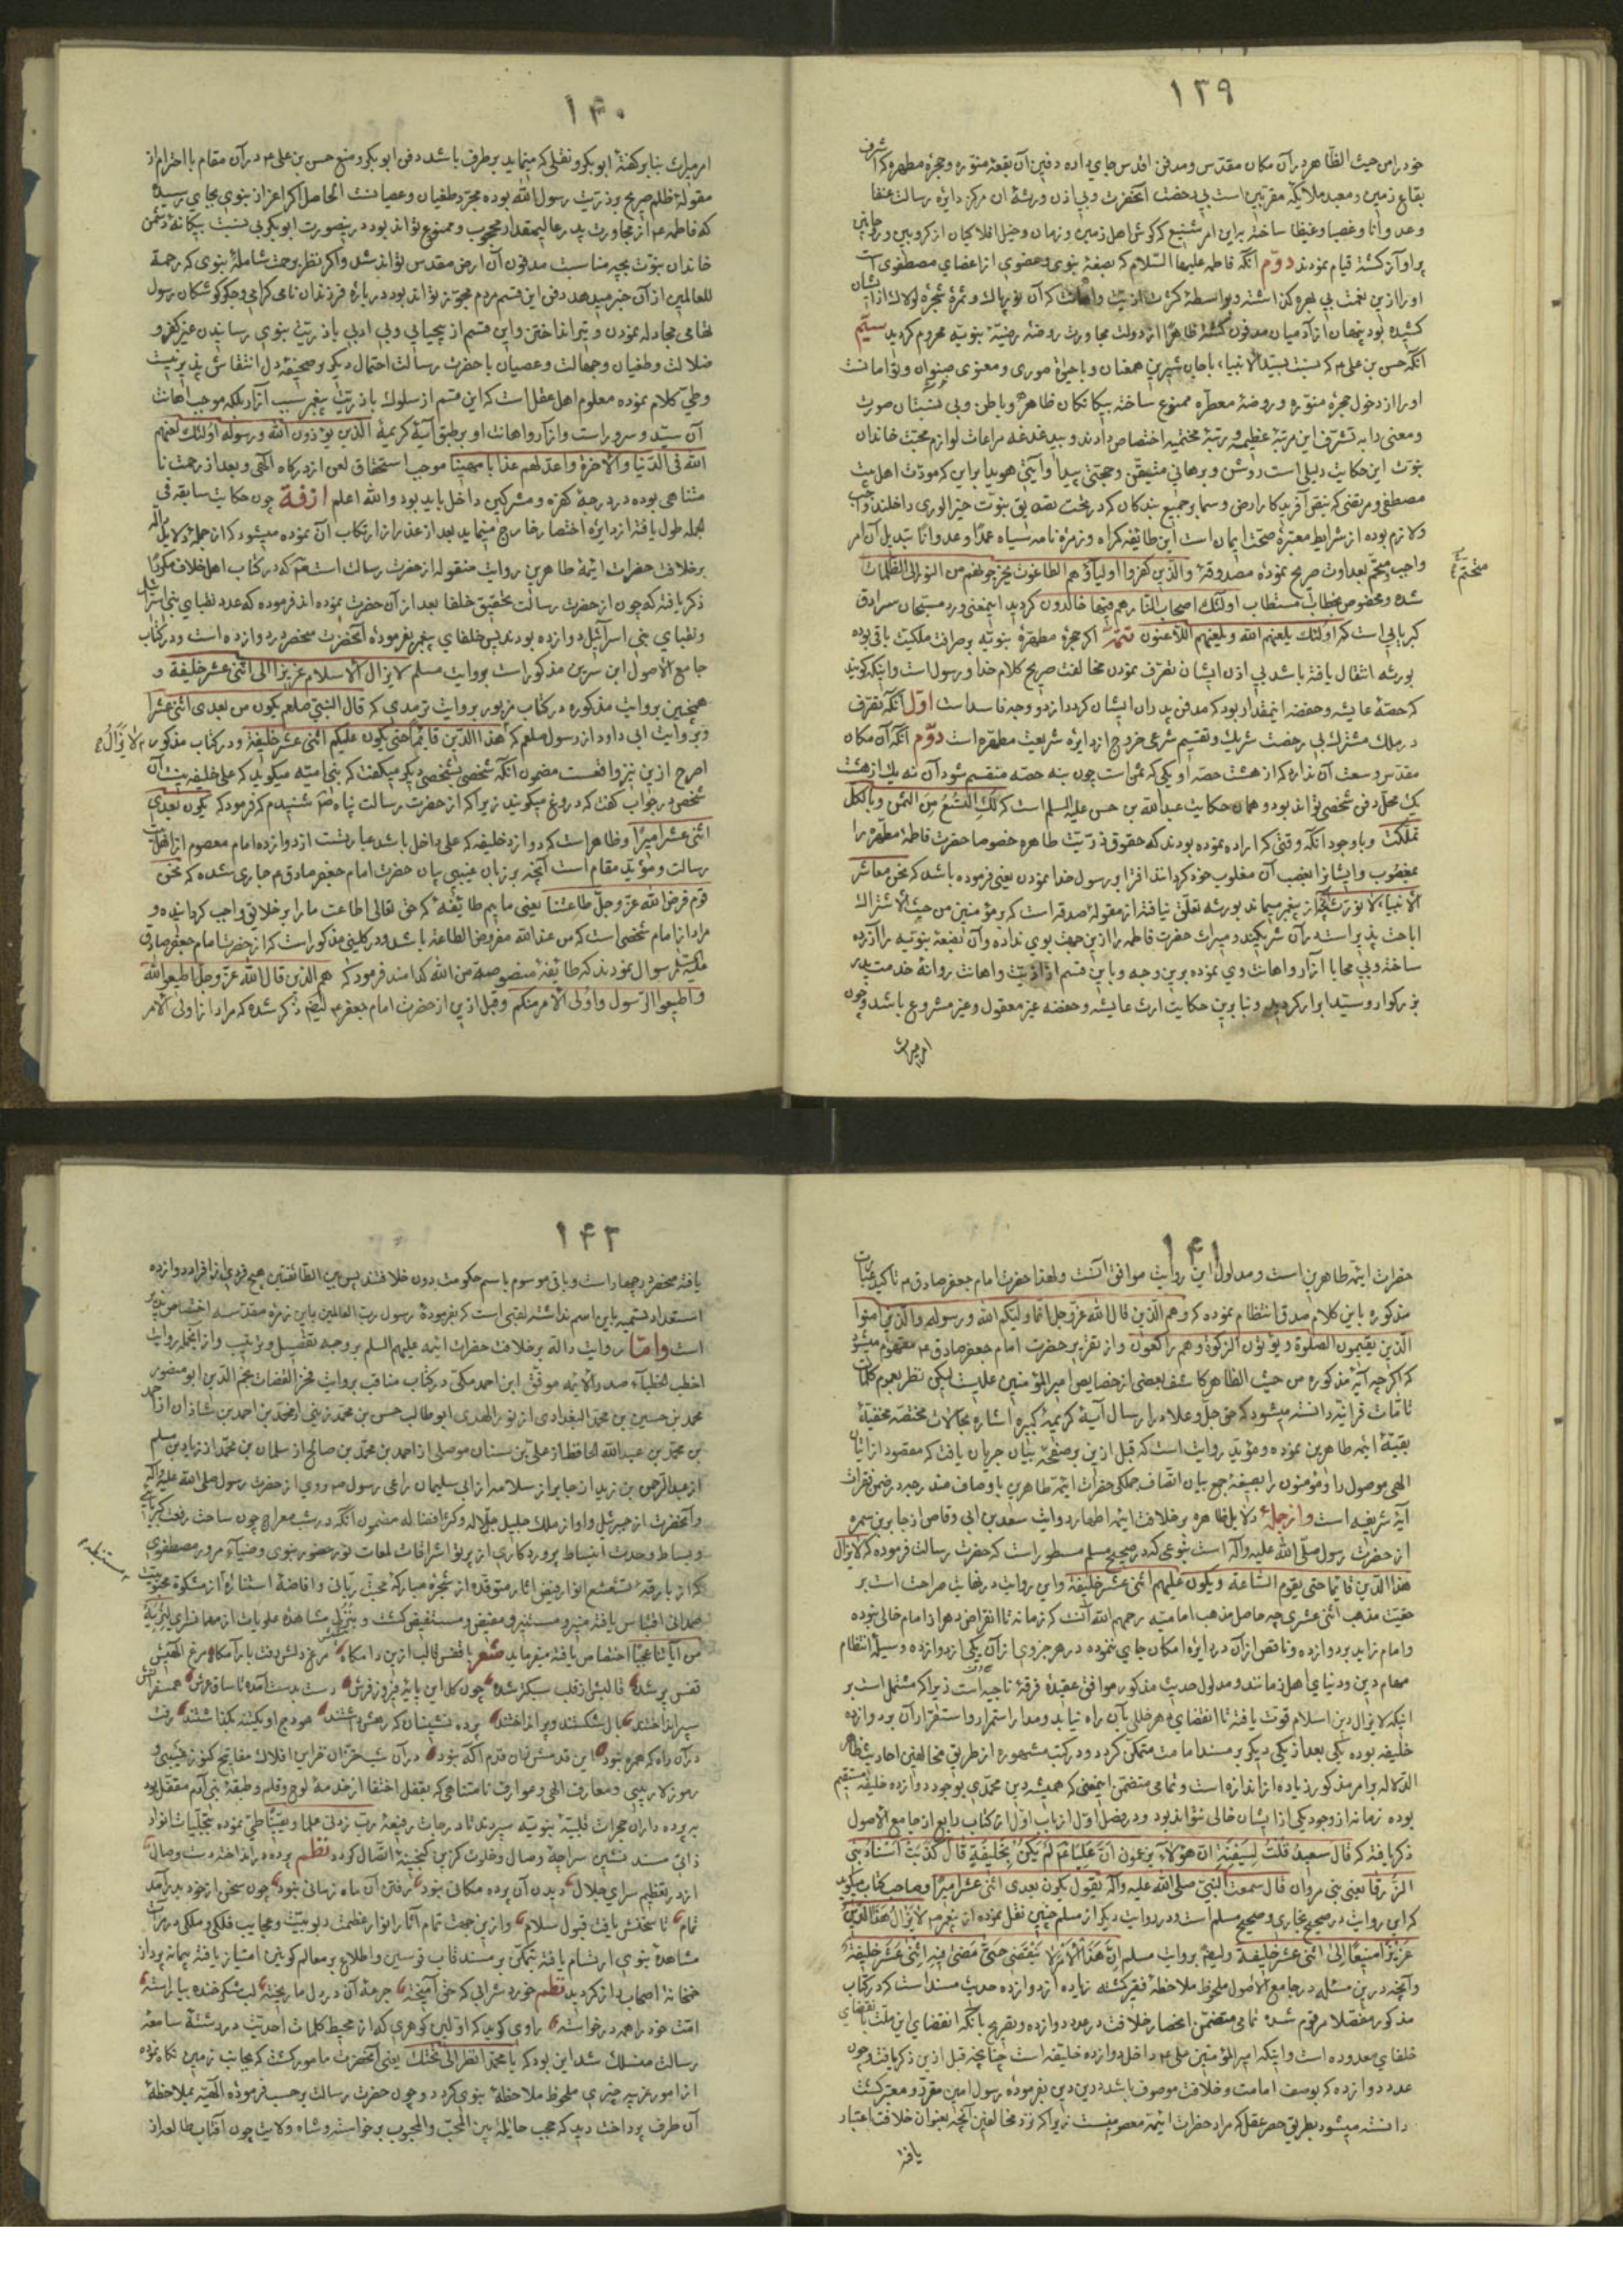 ۱۳۹
خود را من حیث الظاهر در آن مکان مقدس و مدفن اقدس جای داده دفین آن بقعهٔ منوره و حجرهٔ مطهره که اشرف
بقاع زمین و معبد ملائکه مقربین است بی رخصت آنحضرت و بی اذن ورثهٔ آن مرکز دایرهٔ رسالت عنفا
وعدوانا وغصبا وغیظا ساخته براین امر شنیع که کوش اهل زمین و زمان و خیل افلاکیان از کروبین و روحانین
پر آوازه کشته قیام نمودند دوم آنکه فاطمه علیها السلام که بضعهٔ نبوی و عضوی از اعضای مصطفوی است
او را ازین نعمت بی بهره کذاشته و بواسطهٔ کثرت اذیت واهانت که آن نور پاک و ثمرهٔ شجرهٔ لولاک از ایشان
کشیده بود پنهان از آدمیان مدفون کشته ظاهرا از دولت مجاورت روضهٔ رضیهٔ نبویه محروم کردید سیّم
آنکه حسن بن علی م که نسبت بسید الانبیاء با جان شیرین همعنان و با حیوة صوری و معنوی صنوان و توامانست
او را از دخول حجرهٔ منوره و روضهٔ معطره ممنوع ساخته بیکانکان ظاهر و باطن و بی نسبتان صورت
ومعنی را به تشرف این مرتبهٔ عظیمه و رتبهٔ محتشمه اختصاص دادند و بیدغدغه مراعات لوازم محبت خاندان
نبوت این حکایت دلیلی است روشن و برهانی متیقن و حجتی پیدا و آیتی هویدا براین که مودت اهل بیت
مصطفی و مرتضی که
ولازم بوده از شرایط معتبرهٔ صحت ایمان است این طائفه کمراه و زمرهٔ نامه سیاه عمدا وعدوانا تبدیل آن امر
واجب بعداوت صریح نموده مصدوقهٔ والذین کفروا اولیاؤهم الطاغوت یخرجونهم من النور الی الظلمات
شده ومخصوص بخطاب مستطاب اولئک اصحاب النار هم فیها خالدون کردید
کبریایی است که اولئک یلعنهم الله و یلعنهم اللاعنون تتمه اکر حجرهٔ مطهرهٔ نبویه بر صرافت ملکیت باقی بوده
بورثه انتقال یافته باشد بی اذن ایشان تصرف نمودن مخالفت صریح کلام خدا و رسول است و اینکه کویند
که حصهٔ عایشه و حفصه اینمقدار بود که مدفن پدران ایشان کردد از دو وجه فاسد است اول آنکه تصرف
در ملک مشترک بی رخصت شریک و تقسیم شرعی خروج از دایرهٔ شریعت مطهره است دوم آنکه آن مکان
مقدس وسعت آن ندارد که از هشت حصهٔ او یکی که ثمن است چون بنه حصه منقسم شود آن نه یک از هشت
یک محل دفن شخصی تواند بود و همان حکایت عبدالله بن حسن علیه السلم است که لک التسع من الثمن وبالکل
تملکت و با وجود آنکه وقتی که اراده نموده بودند که حقوق ذریت طاهره خصوصا حضرت فاطمهٔ مطهره را
مغصوب و ایشانرا بغصب آن مغلوب خود کردانند افترا بر رسول خدا نمودن یعنی فرموده باشد که نحن معاشر
الانبیاء لا نورث آنچه از پیغمبر میماند بورثه تعلق نیافته از مقولهٔ صدقه است که بر مؤمنین من حیث الاشتراک
اباحت پذیر است در آن شریکند و میراث حضرت فاطمه را ازین جهت بوی نداده و آن بضعهٔ نبویه را آزرده
ساخته و بی محابا آزار و اهانت وی نموده برین وجه و باین قسم اذیت و اهانت روانهٔ خدمت پدر
بزرکوار و سید ابرار کردید و بنا برین حکایت ارث عایشه و حفصه غیر معقول و غیر مشروع باشد و چون
امر میراث
۱۴۰
امر میراث بنا بر کفتهٔ ابو بکر و نقلی که مینماید بر طرف باشد دفن ابو بکر و منع حسن بن علی م در آن مقام با احترام از
مقولهٔ ظلم صریح بر ذریت رسول الله بوده مجرد طغیان و عصیانست الحاصل اکر اعزاز نبوی بجای رسیده
که فاطمه م از مجاورت پدر عالیمقدار محجوب و ممنوع تواند بود درینصورت ابو بکر بی نسبت بیکانهٔ دشمن
خاندان نبوت بچه مناسبت مدفون آن ارض مقدس تواند شد و اکر نظر برحمت شاملهٔ نبوی که رحمة
للعالمین از آن خبر میدهد دفن این قسم مردم مجوز تواند بود در بارهٔ فرزندان نامی کرامی و جکر کوشکان رسول
تهامی مجادله نمودن و تیر انداختن و این قسم از بیحیایی و بی ادبی با ذریت نبوی رسانیدن غیر کفر و
ضلالت و طغیان و جهالت و عصیان با حضرت رسالت احتمال دیکر بر صحیفهٔ دل انتقاش پذیر نیست
وطی کلام نموده معلوم اهل عقل است که این قسم از سلوک با ذریت پیغمبر سبب آزار بلکه موجب اهانت
آن سید و سرور است و آزار و اهانت او بر طبق آیهٔ کریمهٔ الذین یؤذون الله ورسوله اولئک لعنهم
الله فی الدنیا والآخرة واعد لهم عذابا مهینا موجب استحقاق لعن از درکاه الهی و بعد از رحمت نا
متناهی بوده در درجهٔ کفره و مشرکین داخل باید بود والله اعلم ازفة چون حکایت سابقه فی
الجمله طول یافته از دایرهٔ اختصار خارج مینماید بعد از عذر از ارتکاب آن نموده میشود که از جملهٔ دلایل دالّه
بر خلافت حضرات ائمهٔ طاهرین روایت منقوله از حضرت رسالت است که در کتاب اهل خلاف مکررا
ذکر یافته که چون از حضرت رسالت تحقیق خلفا بعد از آن حضرت نموده اند فرموده که عدد نقبای بنی اسرائیل
ونقبای بنی اسرائیل دوازده بودند پس خلفای پیغمبر بفرمودهٔ آنحضرت منحصر در دوازده است و در کتاب
جامع الاصول ابن مذکور است بروایت مسلم لایزال الاسلام عزیزا الی اثنی عشر خلیفة و
همچنین بروایت مذکوره در کتاب مزبور بروایت ترمدی که قال النبی صلعم یکون من بعدی اثنی عشرا
وبروایت ابی داود از رسول صلعم که هذا الدین قایما حتی یکون علیکم اثنی عشر خلیفة و در کتاب مذکور لایزال
اصرح ازین نیز واقعست مضمون آنکه شخصی بشخصی دیکر میکفت که بنی امیه میکویند که علی خلیفه نیست آن
شخص در جواب کفت که دروغ میکویند زیرا که از حضرت رسالت پناه شنیدم که فرمود که یکون بعدی
اثنی عشر امیرا وظاهر است که دوازده خلیفه که علی داخل باشد عبارتست از دوازده امام معصوم از اهل بیت
رسالت و مؤید مقام است آنچه بر زبان غیبی بیان حضرت امام جعفر صادق م جاری شده که نحن
قوم فرض الله عز وجل طاعتنا یعنی ماییم طایفهٔ که حق تعالی اطاعت ما را بر خلایق واجب کردانیده و
مراد از امام شخصی است که من عند الله مفروض الطاعة باشد و در کلینی مذکور است که از حضرت امام جعفر صادق
علیه السلام سوال نمودند که طایفهٔ منصوصهٔ من الله کدامند فرمود که هم الذین قال الله عز وجل اطیعوا الله
واطیعوا الرسول واولی الامر منکم وقبل ازین از حضرت امام جعفر م ذکر شده که مراد از اولی الامر
۱۴۱
حضرات ائمه طاهرین است و مدلول این روایت موافق آنست ولهذا حضرت امام جعفر صادق م تاکید عبارت
مذکوره باین کلام صدق انتظام نموده که وهم الذین قال الله عز وجل انما ولیکم الله ورسوله والذین آمنوا
الذین یقیمون الصلوة ویؤتون الزکوة وهم راکعون واز تقریر حضرت امام جعفر صادق م مفهوم میشود
که اکر چه آیهٔ مذکوره من حیث الظاهر کاشف بعضی از خصایص امیر المؤمنین علیست لیکن نظر بعموم کلمات
تامات قرانیه دانسته میشود که حق جل وعلا مراد از ارسال آیهٔ کریمهٔ کبیره اشاره بحالات مختصه مخفیهٔ
بقیهٔ ائمه طاهرین نموده و مؤید روایت است که قبل ازین بر صفحهٔ بیان جریان یافت که مقصود از اتیان
الهی موصول را و مؤمنون را بصیغهٔ جمع بیان اتصاف جملکی حضرات ائمهٔ طاهرین باوصاف مندرجه در ضمن فقرات
آیهٔ شریفه است واز جملهٔ دلایل ظاهره بر خلافت ائمهٔ اطهار روایت سعد بن ابی وقاص از جابر بن سمره
از حضرت رسول صلی الله علیه وآله است بنوعی که در صحیح مسلم مسطور است که حضرت رسالت فرموده که لایزال
هذا الدین قایما حتی یقوم الساعة ویکون علیهم اثنی عشر خلیفة واین روایت در نهایت صراحت است بر
حقیت مذهب اثنی عشری چه حاصل مذهب امامیه رحمهم الله آنست که زمانه تا انقراض دهر از امام خالی نبوده
وامام زاید بر دوازده وناقص از آن در دایرهٔ امکان جایی ننموده در هر جزوی از آن یکی از دوازده وسیلهٔ انتظام
مهام دین ودنیای اهل زمانند ومدلول حدیث مذکور موافق عقیدهٔ فرقهٔ ناجیه است زیرا که مشتمل است بر
اینکه لایزال دین اسلام قوت یافته تا انقضای دهر خللی بآن راه نیابد ومدار استمرار واستقرار آن بر دوازده
خلیفه بوده یکی بعد از یکی دیکر بر مسند امامت متمکن کردد ودر کتب مشهوره از طریق مخالفین احادیث ظاهر
الدلاله بر امر مذکور زیاده از اندازه است وتمامی متضمن اینمعنی که همیشه دین محمدی بوجود دوازده خلیفه مستقیم
بوده زمانه از وجود یکی از ایشان خالی نتواند بود ودر فصل اول از باب اول از کتاب رابع از جامع الاصول
ذکر یافته که قال سعید قلت لسفینة ان هؤلاء یزعمون ان علیا م لم یکن بخلیفة قال کذبت استاه بنی
الزرقا یعنی بنی مروان قال سمعت النبی صلی الله علیه وآله یقول یکون بعدی اثنی عشر امیرا وصاحب کتاب میکوید
که این روایت در صحیح بخاری وصحیح مسلم است ودر روایت دیکر از مسلم چنین نقل نموده از پیغمبر م لا یزال هذا الدین
عزیزا منیعا الی اثنی عشر خلیفة وایضا بروایت مسلم ان هذا الامر لا ینقضی حتی مضی فیه اثنی عشر خلیفة
وآنچه درین مسئله در جامع الاصول ملحوظ ملاحظهٔ فقیر کشته زیاده از دوازده حدیث مسند است که در کتاب
مذکور مفصلا مرقوم شده تمامی متضمن انحصار خلافت در عدد دوازده وتصریح بآنکه انقضای این ملت بانقضای
خلفای معدوده است واینکه امیر المؤمنین علی م داخل دوازده خلیفه است چنانچه قبل ازین ذکر یافت وچون
عدد دوازده که بوصف امامت وخلافت موصوف باشد در دین بفرمودهٔ رسول امین مقرر ومعتبر کشت
دانسته میشود بطریق حصر عقل که مراد حضرات ائمهٔ معصومینست زیرا که نزد مخالفین آنچه بعنوان خلافت اعتبار
یافته
۱۴۲
یافته منحصر در چهار است وباقی موسوم باسم حکومت بدون خلافتند پس بین الطائفتین هیچ فردی از افراد دوازده
استعداد تسمیه باین اسم نداشته لقبی است که بفرمودهٔ رسول رب العالمین باین زمرهٔ مقدسه اختصاص پذیر
است واما روایت دالّه بر خلافت حضرات ائمه علیهم السلم بر وجه تفصیل وترتیب واز انجمله روایت
اخطب الخطباء صدر الائمه موفق ابن احمد مکی در کتاب مناقب بروایت فخر القضات نجم الدین ابو منصور
محمد بن حسین بن محمد البغدادی از نور الهدی ابو طالب حسن بن محمد زینبی از محمد بن احمد بن شاذان از احمد
بن محمد بن عبد الله الحافظ از علی بن سنان موصلی از احمد بن محمد بن صالح از سلمان بن محمد از زیاد بن مسلم
از عبد الرحمن بن زید از جابر از سلامه از ابی سلیمان راعی رسول ص م روی از حضرت رسول صلی الله علیه وآله
وآنحضرت از جبرئیل واو از ملک جلیل جل جلاله مضمون آنکه در شب معراج چون ساحت رفعت کبریایی
وبساط وحدت انبساط پروردکاری از پرتو اشراقات لمعات نور حضور نبوی وضیاء مرور مصطفوی
که از بارقهٔ تشعشع انوار فیض آثار متوقده از شجرهٔ مبارکهٔ محبت ربانی وافاضهٔ استنارهٔ از مشکوة محبوبیت
صمدانی اقتباس یافته منیر ومستنیر ومفیض ومستفیض کشت و مشاهدهٔ علویات از مصافرای لنریه
من آیاتنا عجبا اختصاص یافته میفرماید شعر با قفس قالب ازین دامکاه مرغ دلش رفت بآرامکاه مرغ الهیش
قفس پر شده قالبش از قلب سبکتر شده چون کل این پایهٔ فیروز فرش دست بدست آمده تا ساق عرش همسفرانش
سپر انداختند بال شکستند وپر انداختند پرده نشینان که رهش داشتند هودج او یکتنه بکذاشتند رفت
در آن راه که همره نبود این قدمش زان قدم آکه نبود در آن شب خزان خزاین افلاک مفاتیح کنوز غیبی و
رموز لاریبی ومعارف الهی وعوارف نامتناهی که بقفل اختفا از خدمهٔ لوح وقلم وطبقهٔ بنی آدم مقفل بود
بپرده داران حجرات قلبیهٔ نبویه سپردند تا درجات رفیعهٔ رب زدنی علما ویقینا طی نموده بتجلیات انوار
ذاتی مسند نشین سراچهٔ وصال وخلوت کزین کنجینهٔ اتصال کردد نظم پرده در انداخته دست وصال
از در تعظیم سرای جلال دیدن آن پرده مکانی نبود رفتن آن راه زمانی نبود چون سخن از خود بدر آمد
تمام تا سخنش یافت قبول سلام وازین جهت تمام آثار انوار عظمت ربوبیت وعجایب فلکی وملکی در مرآت
مشاهدهٔ نبوی ارتسام یافته بتمکن بر مسند قاب قوسین واطلاع بر معالم کونین امتیاز یافته پیمانه پرداز
خمخانهٔ اصحاب راز کردید نظم خورد شرابی که حق آمیخته جرعهٔ آن در دل ما ریخته لب شکر خنده بیاراسته
امت خود را همه در خواسته راوی کوید که اولین کوهری که از محیط کلمات احدیت در رشتهٔ سامعهٔ
رسالت منسلک شد این بود که یا محمد انظر الی تحتک یعنی آنحضرت مامور کشت که بجانب زمین نکاه نموده
از امور غریبه چیزی ملحوظ ملاحظهٔ نبوی کردد وچون حضرت رسالت بر حسب فرمودهٔ الهیه بملاحظهٔ
آن طرف پرداخت دید که حجب حایلهٔ بین المحب والمحبوب برخواسته وشاه ولایت چون آفتاب طالعه از